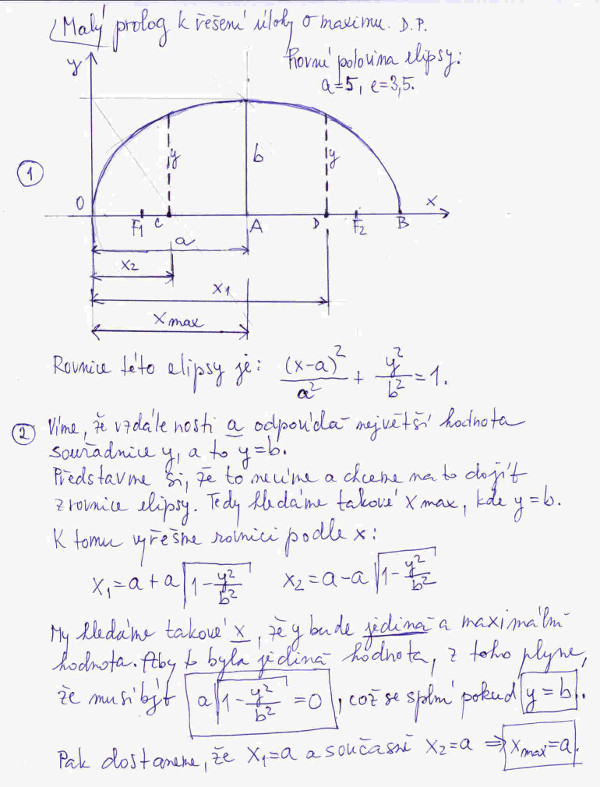 Malý prolog k řešení úlohy o maximu. D.P.
Rovní polovina elipsy:
a=5, e=3,5.
y
1
y
b
y
O
F1
C
A
D
F2
B
x
a
x2
x1
x max
Rovnice této elipsy je: (x-a)²/a² + y²/b² = 1.
2 Víme, že vzdálenosti a odpovídá největší hodnota
souřadnice y, a to y=b.
Představme si, že to nevíme a chceme na to dojít
z rovnice elipsy. Tedy hledáme takové x max, kde y=b.
K tomu vyřešme rovnici podle x:
x1=a+a√(1-y²/b²) x2=a-a√(1-y²/b²)
My hledáme takové x, že y bude jediná a maximální
hodnota. Aby to byla jediná hodnota, z toho plyne,
že musí být a√(1-y²/b²)=0, což se splní pokud y=b.
Pak dostaneme, že x1=a a současně x2=a ⇒ xmax=a.